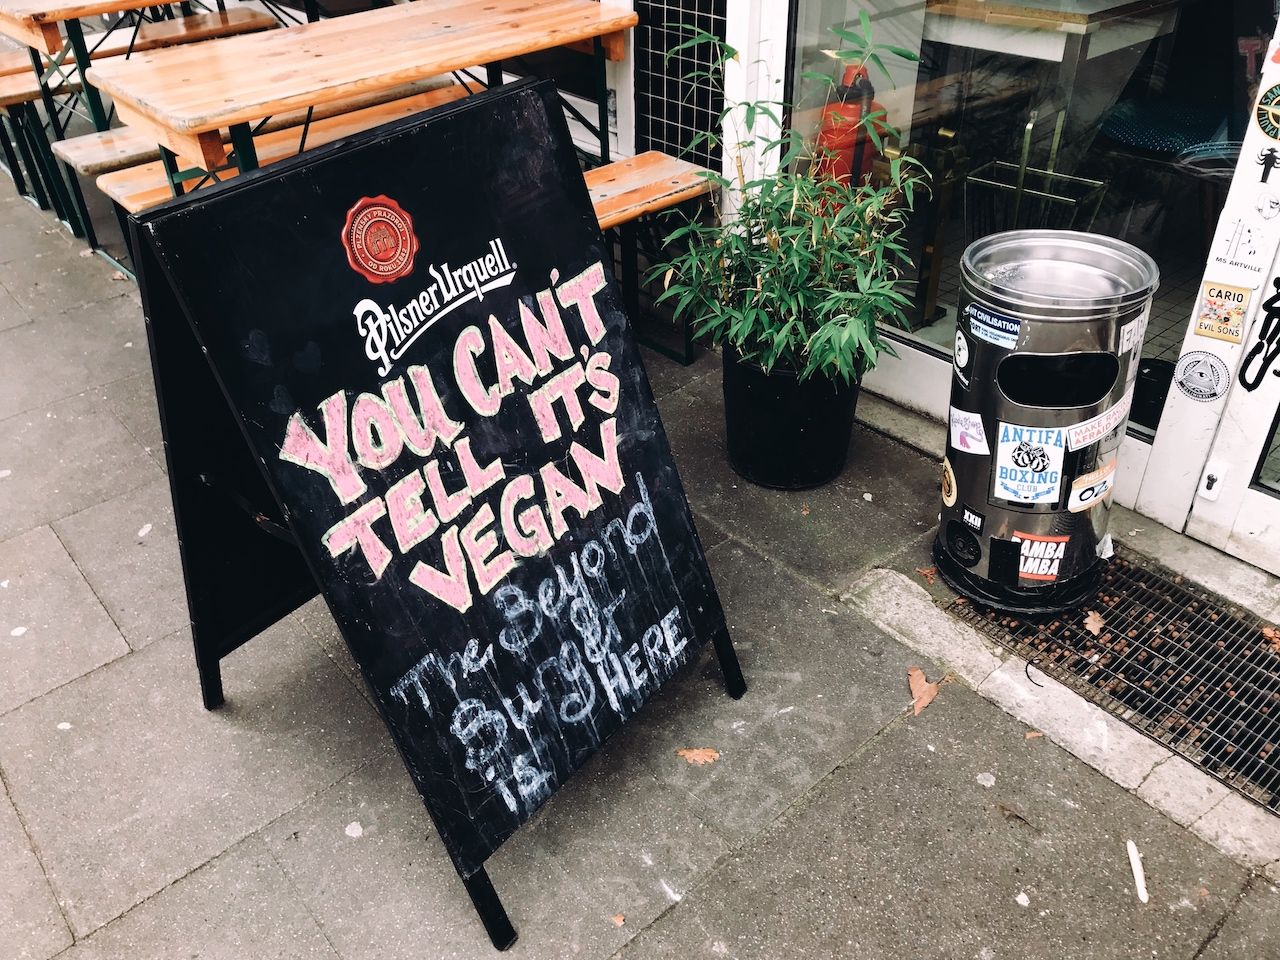 PLZEŇSKÝ PRAZDROJ
OD ROKU 1842
Pilsner Urquell
YOU CAN'T
TELL IT'S
VEGAN
The Beyond
Burger
is HERE
CIVILISATION
ANTIFA
BOXING
CLUB
MAKE
AFRAID
XXII
BAMBA
MS ARTVILLE
CARIO
EVIL SONS